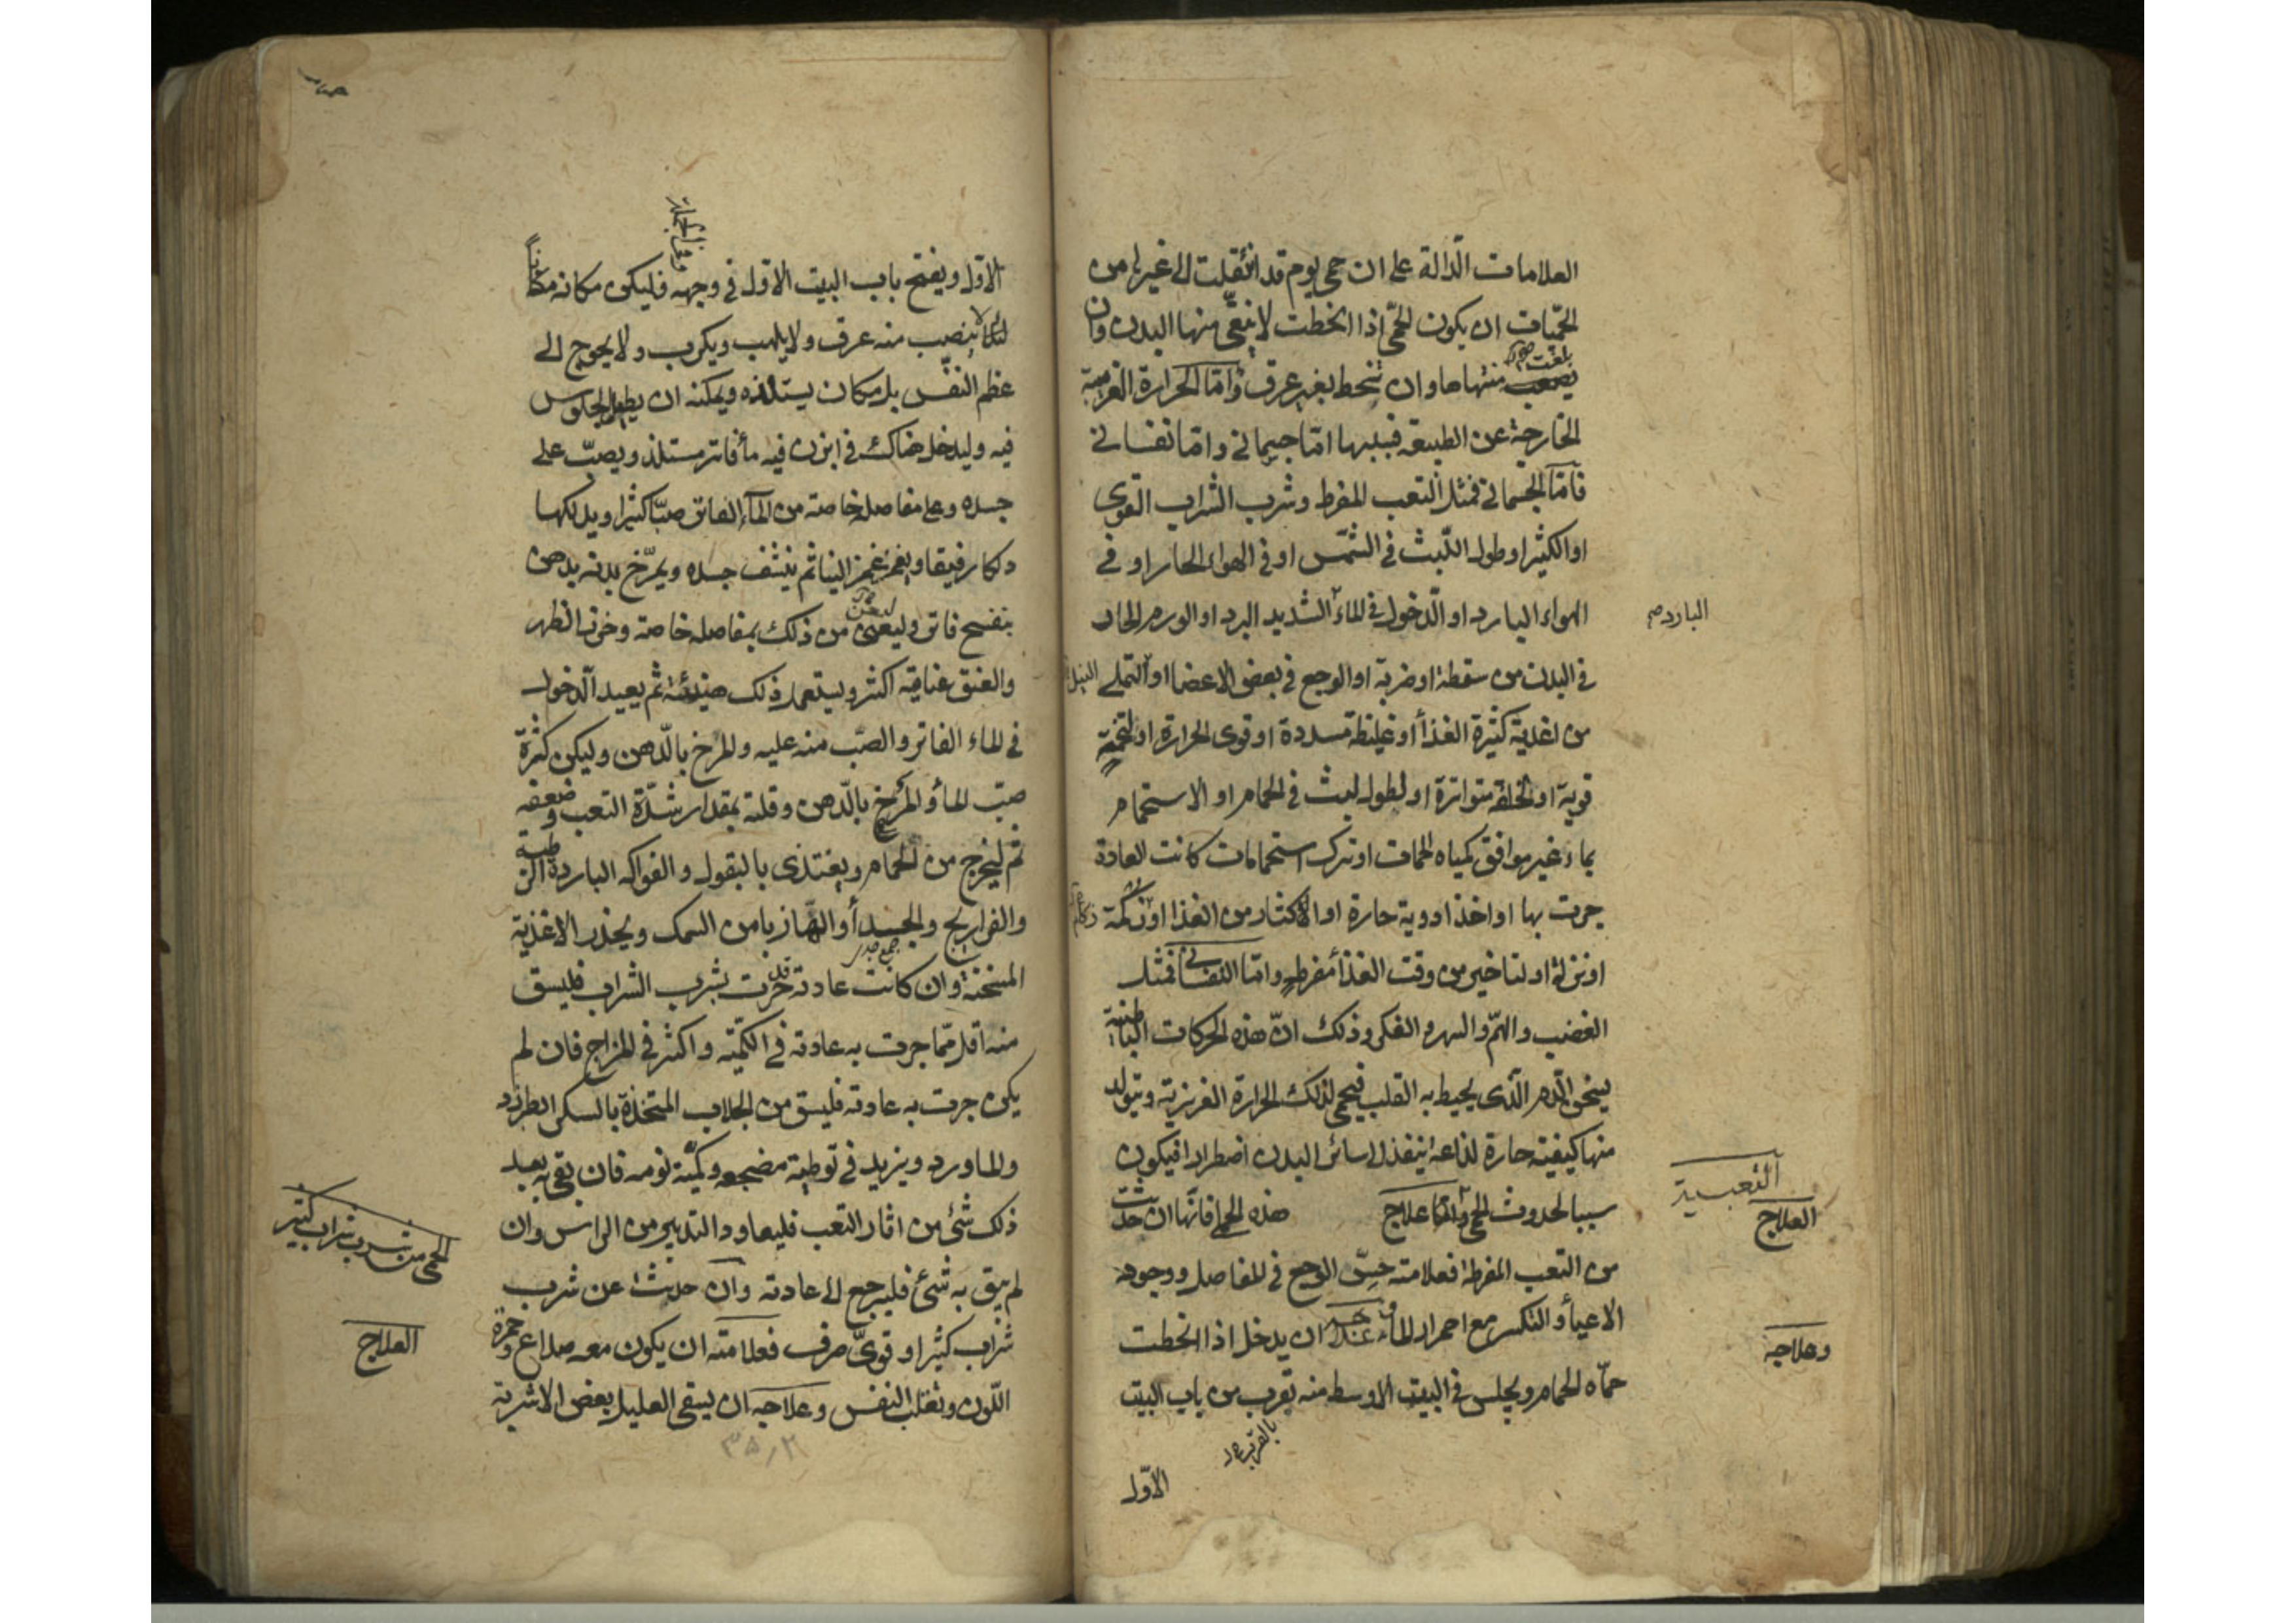 العلامات الدّالة على ان حمى يوم قد انتقلت الى غيرها من
الحمّيات ان يكون الحمّى اذا انحطت لا ينقى منها البدن وان
بلغت
منتهاها وان تنحط بغير عرق وامّا الحرارة الغريبة
الخارجة عن الطبيعة فسببها امّا جسماني وامّا نفساني
فامّا الجسماني فمثل التعب المفرط وشرب الشراب القوى
او الكثير او طول اللّبث في الشمس او في الهواء الحار او في
الهواء البارد او الدّخول في الماء الشديد البرد او الورم الحاد
البارد صح
في البدن من سقطة او ضربة او الوجع في بعض الاعضا او التملى
من اغذية كثيرة الغذأ او غليظة مسددة او قوى الحرارة او لتخمة
قوية او لخلفة متواترة او لطول لبث في الحمام او الاستحمام
بماء غير موافق كمياه الحمات او ترك استحمامات كانت العادة
جرت بها او اخذ ادوية حارة او الاكثار من الغذا او زكمة
او نزلة او لتاخير من وقت الغذأ مفرط وامّا النفساني فمثل
الغضب والهمّ والسهر والفكر وذلك انّ هذه الحركات الباطنية
يسخن الدّم الّذى يحيط به القلب فيحمى لذلك الحرارة الغريزية ويتولد
منها كيفية حارة لذاعة ينفذ الى سائر البدن اضطرارا فيكون
التعبية
سببا لحدوث الحمى وامّا علاج هذه الحمى فانّها ان حدثت
العلاج
من التعب المفرط فعلامته حسّ الوجع في المفاصل ووجود
الاعيأ والتكسر مع احمرار الماء وعلاجه ان يدخل اذا انحطت
وعلاجه
حمّاه الحمام ويجلس في البيت الاوسط منه بقرب من باب البيت
بالقرب
الاوّل
الاوّل ويفتح باب البيت الاول في وجهه فليكن مكانه مكاناً
لا ينصب منه عرق ولا يلهب ويكرب ولا يحوج الى
عظم النفس بل مكان يستلذه ويمكنه ان يطيل الجلوس
فيه وليدخل هناك في ابزن فيه مأ فاتر مستلذ ويصبّ على
جسده وعلى مفاصله خاصة من الماء الفاتر صبّا كثيرا ويدلكها
دلكا رفيقا ويغمز غمز الينا ثم ينشف جسده ويمرّخ بدنه بدهن
بنفسج فاتر وليعنى من ذلك بمفاصله خاصة وخرز الظهر
والعنق عناية اكثر ويستعمل ذلك حينئذ ثم يعيد الدّخول
في الماء الفاتر والصّب منه عليه والمرخ بالدّهن وليكن كثرة
صبّ المأ والمرخ بالدّهن وقلته بمقدار شدّة التعب وضعفه
ثم ليخرج من الحمام ويغتذى بالبقول والفواكه الباردة الرطبة
والفراريج والجدأ والهازبا من السمك ويحذر الاغذية
جمع جدى
المسخنة وان كانت عادته قد جرت بشرب الشراب فليسق
منه اقل ممّا جرت به عادته في الكمّية واكثر في المزاج فان لم
يكن جرت به عادته فليسق من الجلاب المتخذة بالسكر الطبرزد
والماورد ويزيد في توطية مضجعه وكمّية نومه فان بقى به بعد
ذلك شئ من اثار التعب فليعاود التدبير من الراس وان
لم يبق به شئ فليرجع الى عادته وان حدثت عن شرب
الحمى من شرب شراب كثير
شراب كثير او قوىّ صرف فعلامته ان يكون معه صداع وحمرة
العلاج
اللّون وتقلب النفس وعلاجه ان يسقى العليل بعض الاشربة